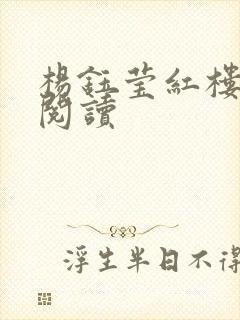 楊鈺莹紅樓
閱讀
浮生半日不得